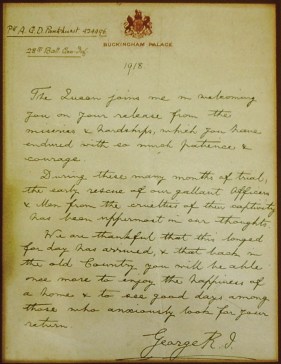 Pte A. G. D.
BUCKINGHAM PALACE
1918
The Queen joins me in welcoming
you on your release from the
miseries & hardships, which you have
endured with so much patience &
courage.
During these many months of trial,
the early rescue of our gallant Officers
& Men from the cruelties of their captivity
has been uppermost in our thoughts.
We are thankful that this longed
for day has arrived, & that back in
the old Country you will be able
once more to enjoy the happiness of
a home & to see good days among
those who anxiously look for your
return.
George R.I.